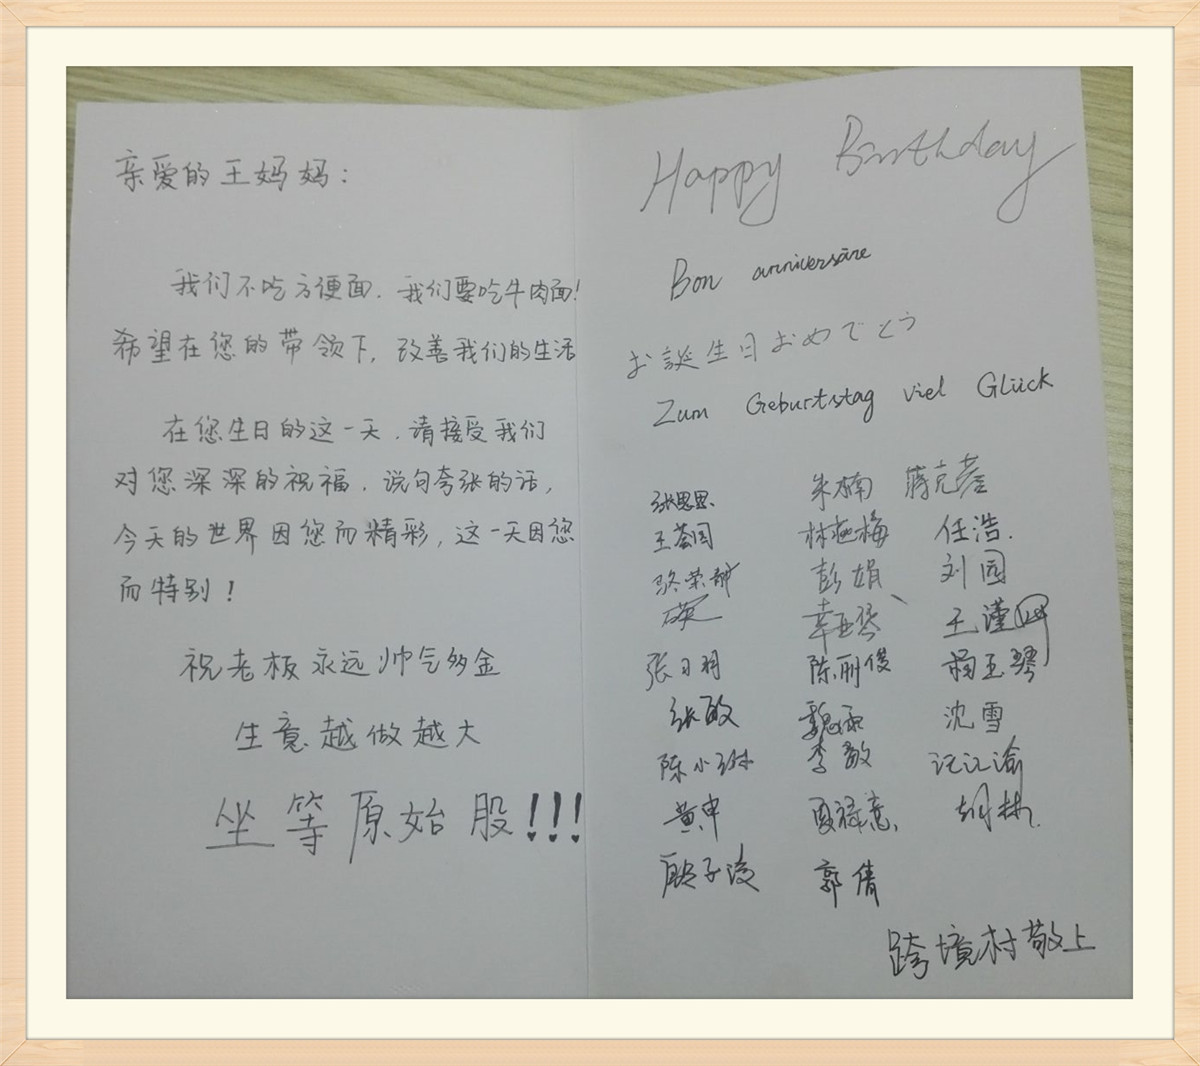 亲爱的王妈妈：
我们不吃方便面，我们要吃牛肉面！
希望在您的带领下，改善我们的生活
在您生日的这一天，请接受我们
对您深深的祝福，说句夸张的话，
今天的世界因您而精彩，这一天因您
而特别！
祝老板永远帅气多金
生意越做越大
坐等原始股!!!
Happy Birthday
Bon anniversaire
お誕生日おめでとう
Zum Geburtstag viel Glück
张思思 朱楠
王荟园 林艳梅 任浩
彭娟 刘园
王谨
张习羽
张敏 魏雨 沈雪
陈小琳 李敏
黄申 胡林
郭倩
跨境村敬上